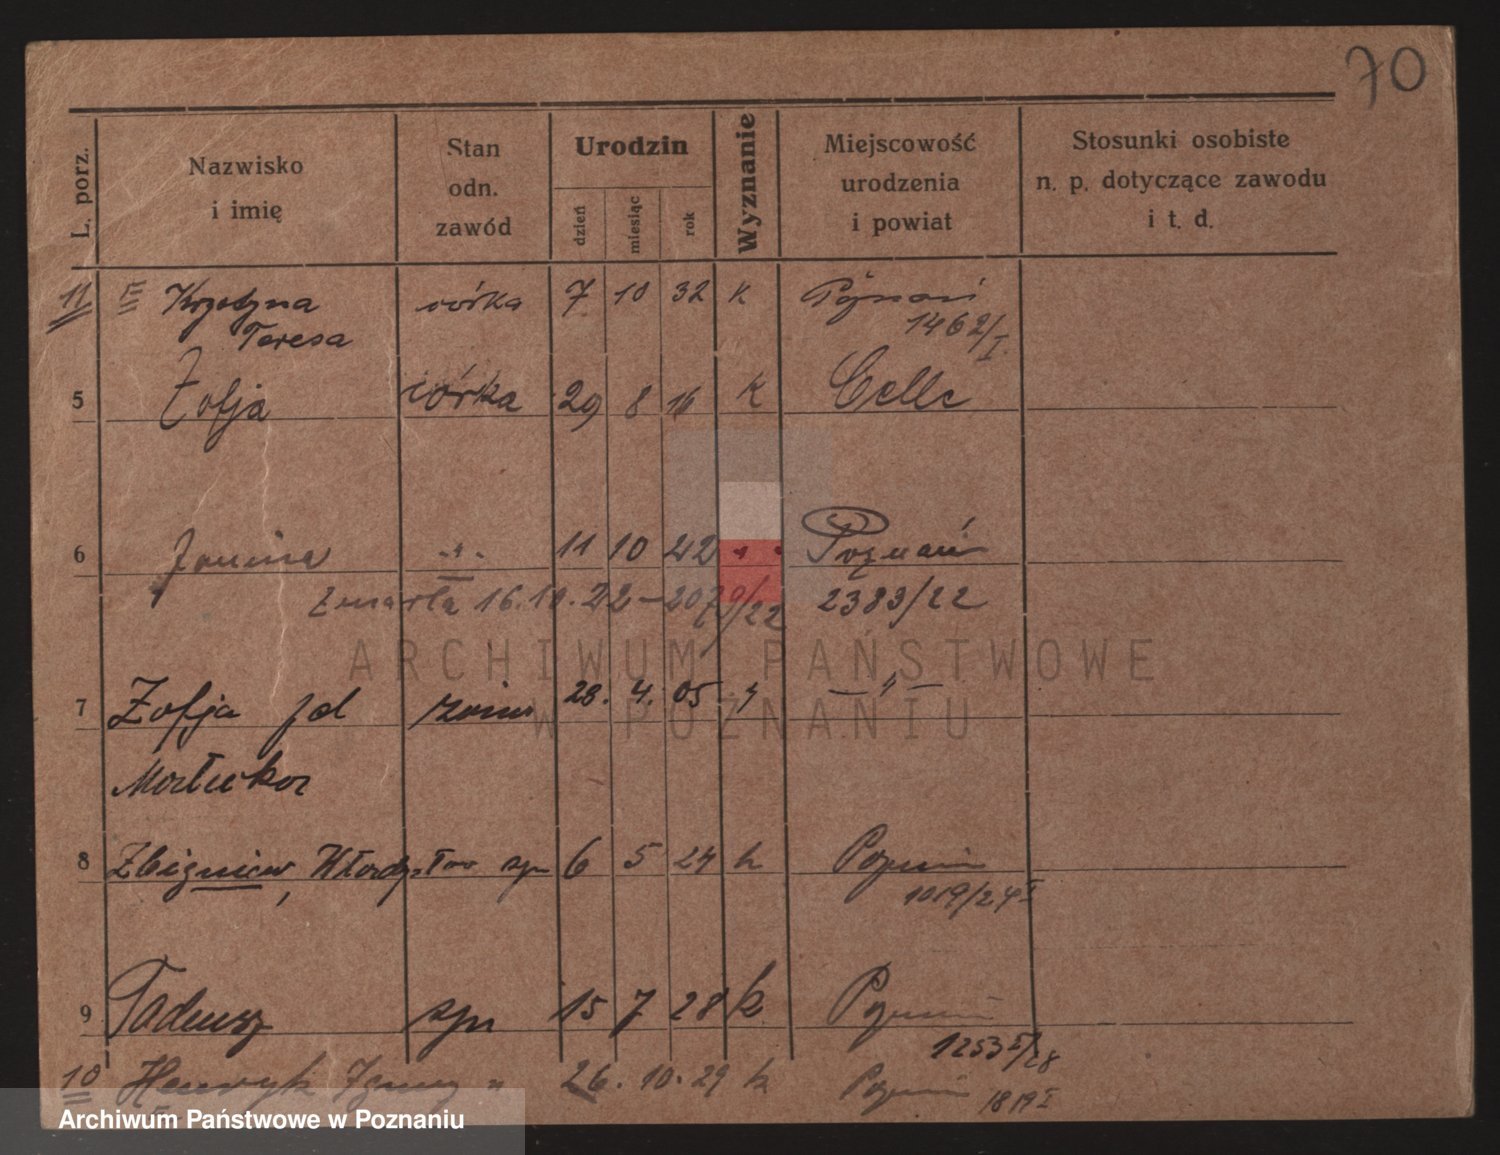 70
L. porz.
Nazwisko
i imię
Stan
odn.
zawód
Urodzin
dzień
miesiąc
rok
Wyznanie
Miejscowość
urodzenia
i powiat
Stosunki osobiste
n. p. dotyczące zawodu
i t. d.
11 Krystyna córka 7 10 32 k Poznań
Teresa 1462/I
5 Zofja córka 29 8 k Celle
6 Janina -"- 11 10 Poznań
zmarła 16.10.22 - 2383/22
7 Zofja żona 28. 4. 05 " -"-
8 Zbigniew, syn 6 5 24 k Poznań
1019/24 I
9 Tadeusz syn 15 7 28 k Poznań
1253 I/28
10 Henryk " 26. 10. 29 k Poznań 1819 I
ARCHIWUM PAŃSTWOWE
W POZNANIU
Archiwum Państwowe w Poznaniu